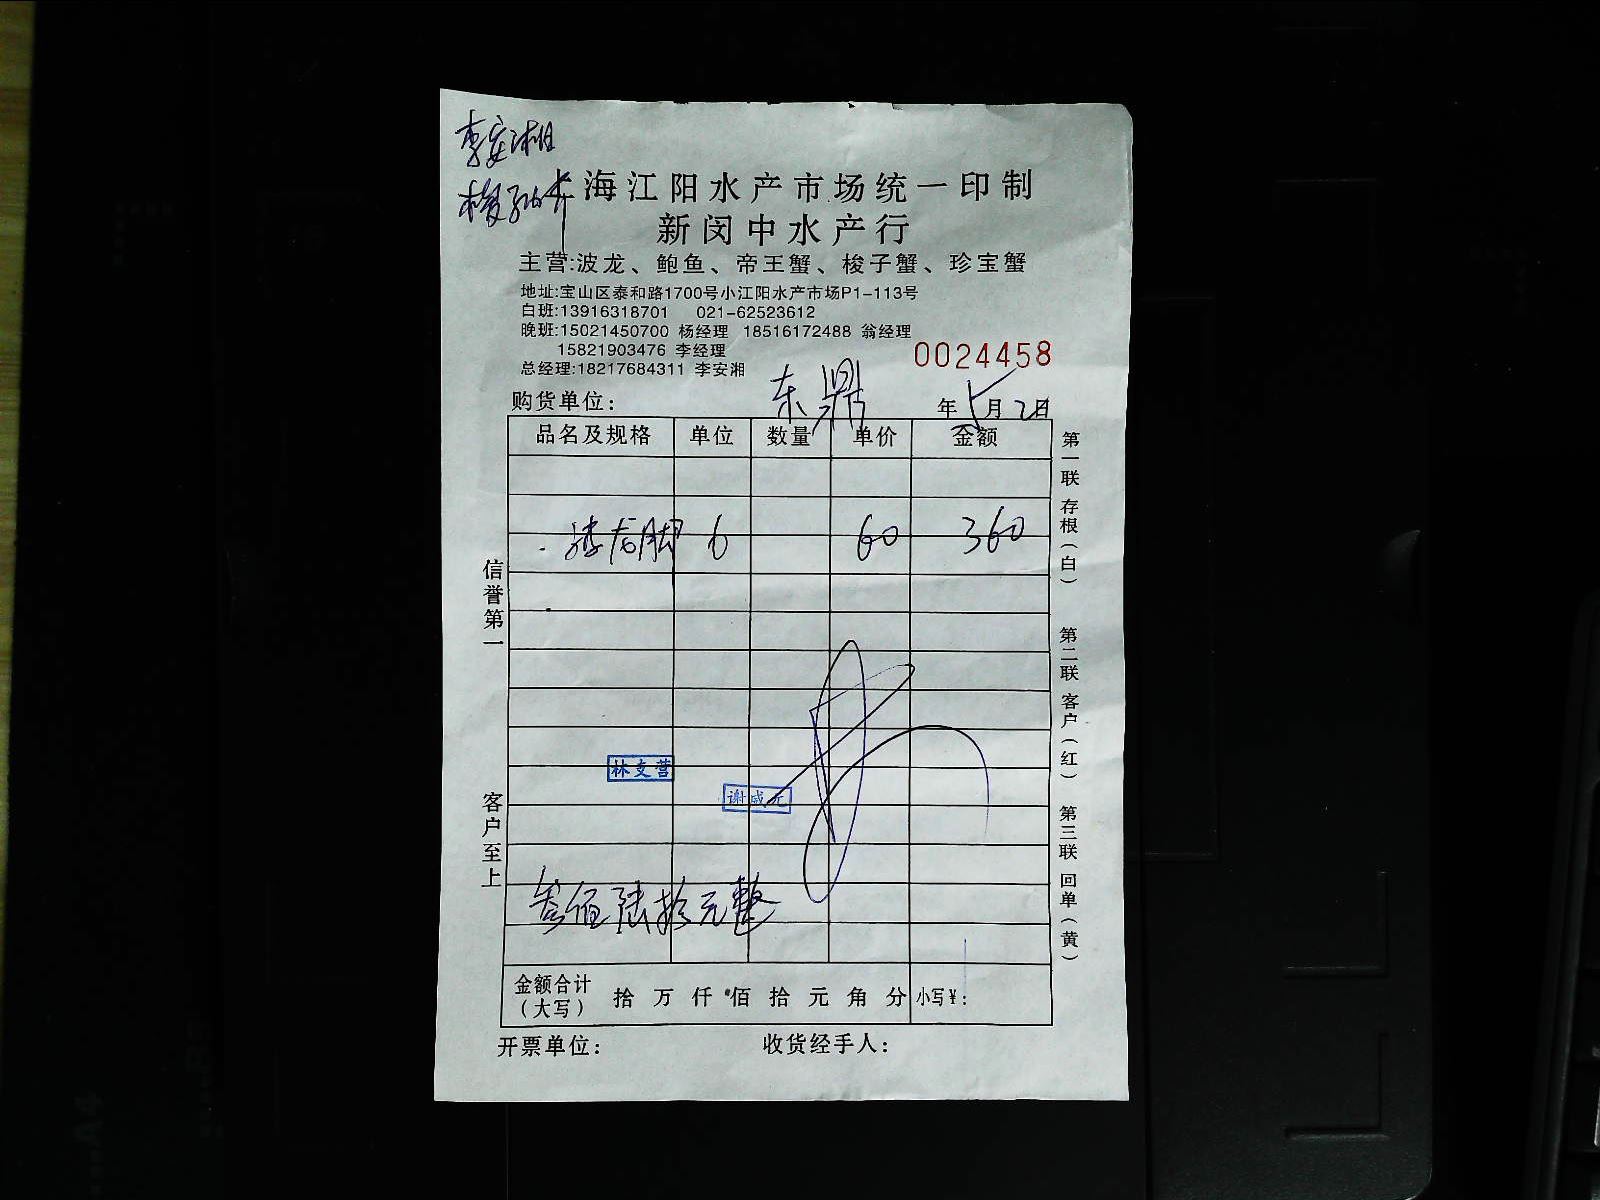 李安湘
海江阳水产市场统一印制
新闵中水产行
主营:波龙、鲍鱼、帝王蟹、梭子蟹、珍宝蟹
地址:宝山区泰和路1700号小江阳水产市场P1-113号
白班:13916318701 021-62523612
晚班:15021450700 杨经理 18516172488 翁经理
15821903476 李经理
总经理:18217684311 李安湘
0024458
购货单位: 东鼎 年 5月2日
品名及规格 单位 数量 单价 金额
龙脚 6 60 360
林支营
谢咸元
叁佰陆拾元整
金额合计(大写) 拾 万 仟 佰 拾 元 角 分 小写¥:
开票单位: 收货经手人:
信誉第一 客户至上
第一联 存根(白) 第二联 客户(红) 第三联 回单(黄)